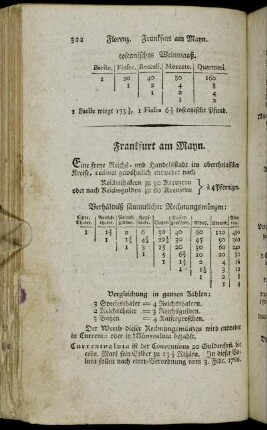 322 Florenz. Frankfurt am Mayn.
toscanisches Weinmaaß.
Barile. Fiasc. Boccali. Mezzette. Quartucci.
1 20 40 80 160
1 2 4 8
1 2 4
1 2
1 Barile wiegt 133⅓, 1 Fiasco 6⅔ toscanische Pfund.
Frankfurt am Mayn.
Eine freye Reichs- und Handelsstadt im oberrheinischen
Kreise, rechnet gewöhnlich entweder nach
Reichsthalern zu 90 Kreuzern
oder nach Reichsgulden zu 60 Kreuzern
à 4 Pfennigen.
Verhältniß sämmtlicher Rechnungsmünzen:
1 1⅓ 2 6 30 40 60 120
1 1½ 4½ 22½ 30 45 90
1 3 15 20 30 60 240
1 5 6⅔ 10 20 80
1 1⅓ 2 4 16
1 1½ 3 12
1 2 8
1 4
Vergleichung in ganzen Zahlen:
3 Speciesthaler = 4 Reichsthalern.
2 Reichsthaler = 3 Reichsgulden.
3 Batzen = 4 Kaisergroschen.
Der Werth dieser Rechnungsmünzen wird entweder
in Current- oder in Münzvaluta bezahlt.
Currentvaluta ist der Conventions 20 Guldenfuß, die
cöln. Mark fein Silber zu 13⅓ Rthlrn. In dieser Va-
luta sollen nach einer Verordnung vom 3. Febr. 1766.